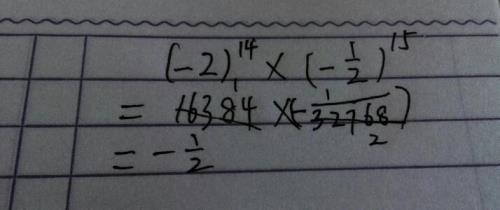 (-2)^14 × (-1/2)^15
= 16384 × (-1/32768)
= -1/2